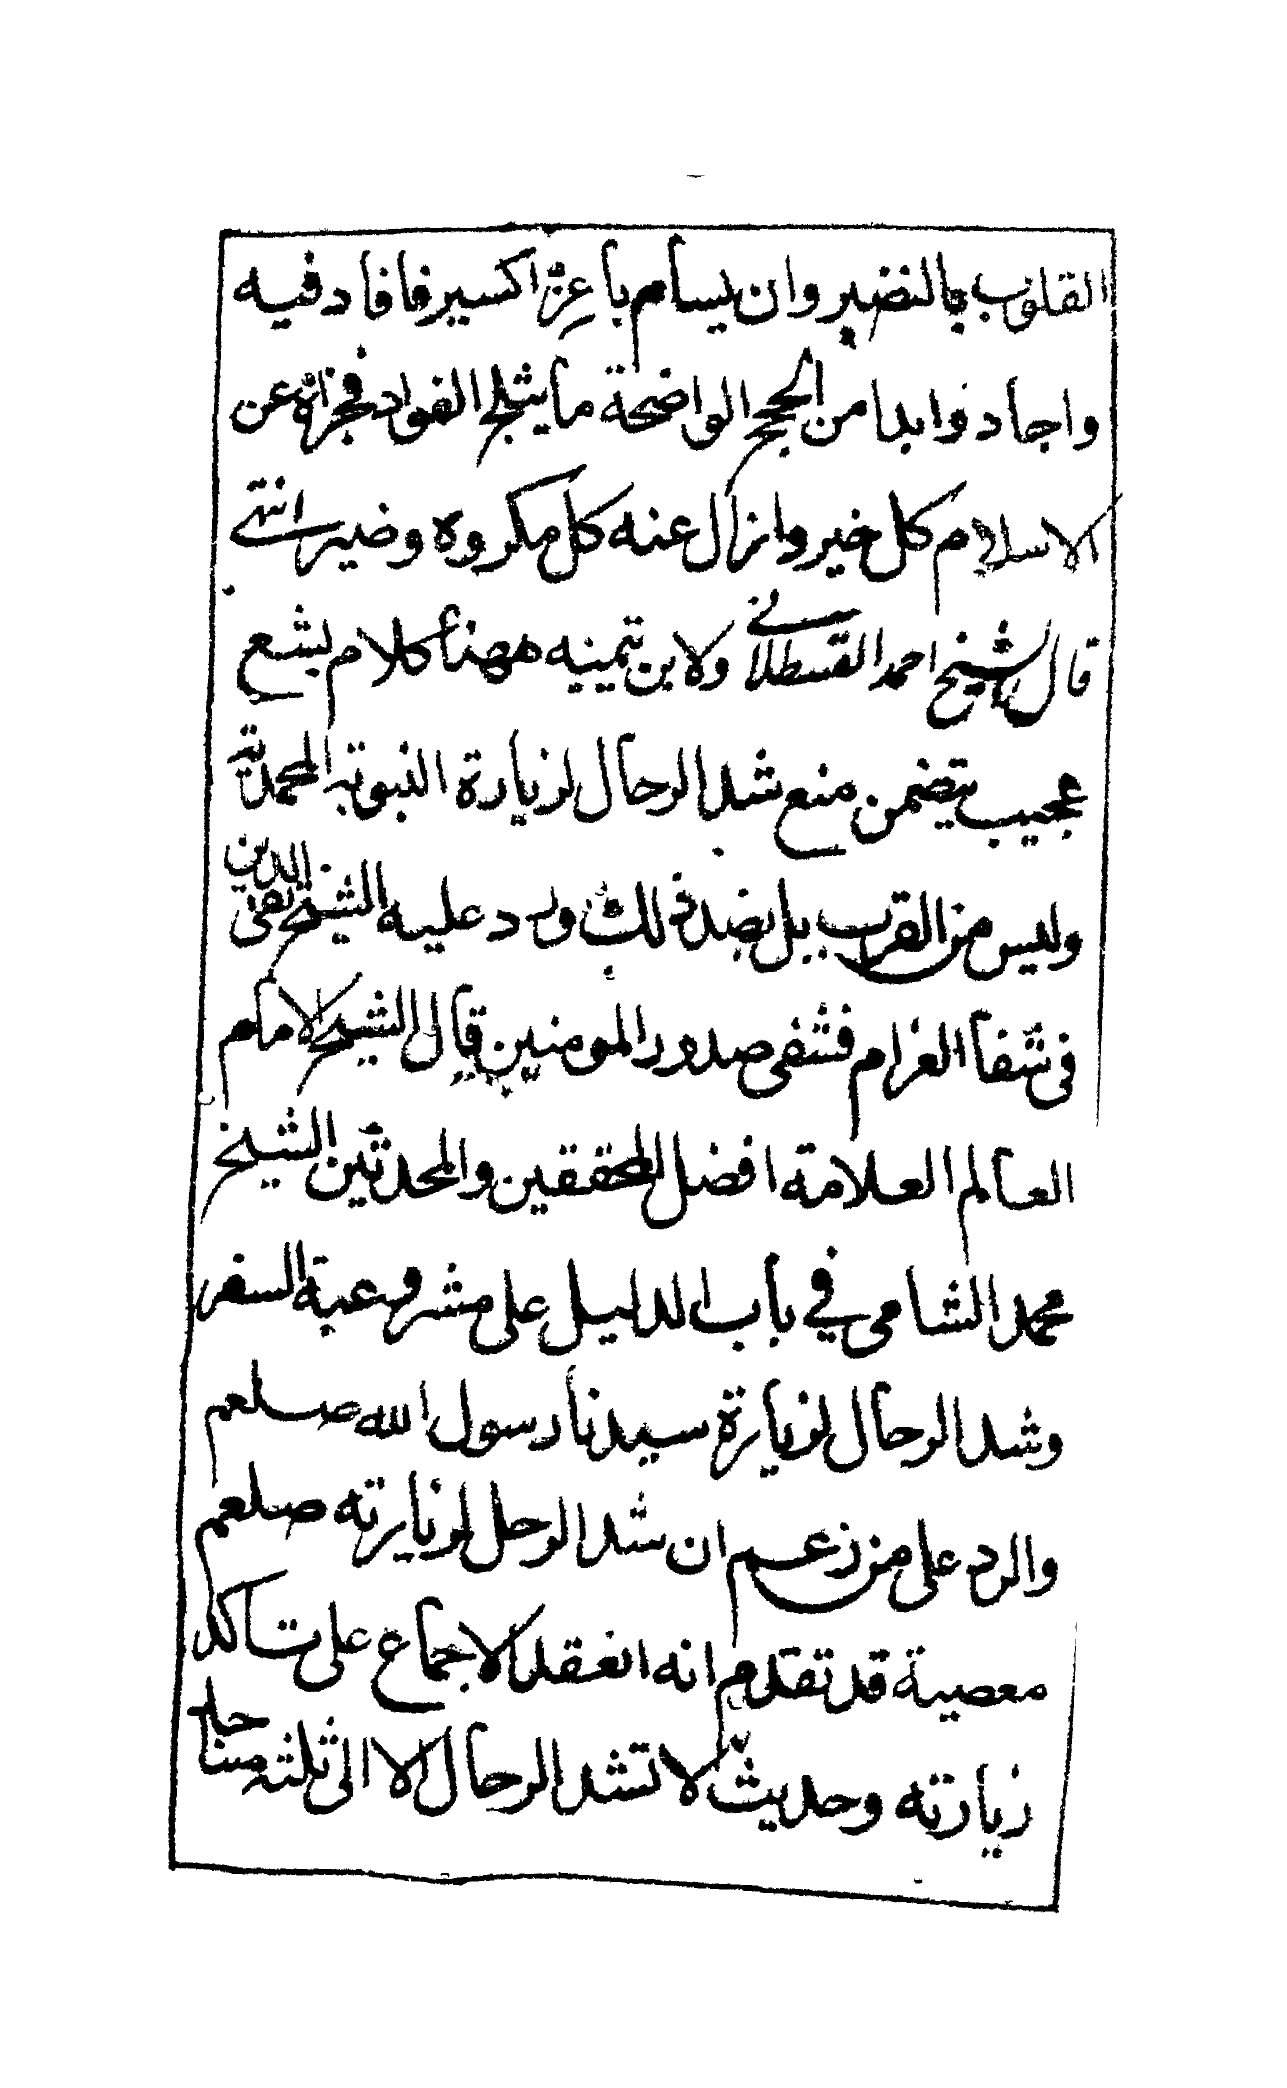 القلوب بالنضير وان يسام باعز اكسير فافاد فيه
واجاد وابدا من الحجج الواضحة ما يثلج الفواد فجزاه عن
الاسلام كل خير وازال عنه كل مكروه وضير انتهى
قال الشيخ احمد القسطلاني ولابن تيميه ههنا كلام بشع
عجيب يتضمن منع شد الرحال لزيارة النبوية المحمدية
وليس من القرب بل بضد ذلك ورد عليه الشيخ تقي الدين
في شفا الغرام فشفى صدور المومنين قال الشيخ الامام
العالم العلامة افضل المحققين والمحدثين الشيخ
محمد الشامي في باب الدليل على مشروعية السفر
وشد الرحال لزيارة سيدنا رسول الله صلعم
والرد على من زعم ان شد الرحل لزيارته صلعم
معصية قد تقدم انه انعقد الاجماع على تاكد
زيارته وحديث لا تشد الرحال الا الى ثلثه مساجد